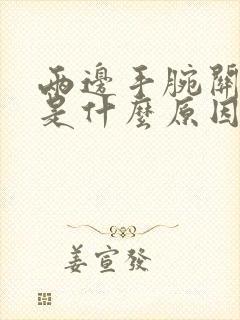 兩邊手腕關
是什麼原因
姜宣發